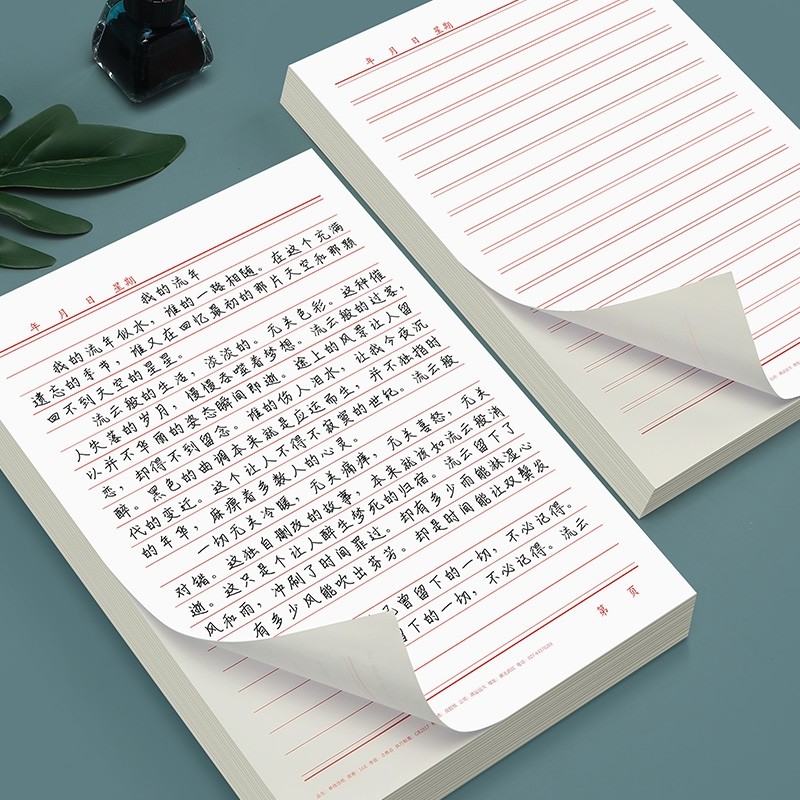 年 月 日 星期
年 月 日 星期
我的流年
我的流年似水，谁的一路相随。在这个充满
遗忘的季节，谁又在回忆最初的那片天空和那颗
回不到天空的星星。
流云般的生活，淡淡的。无关色彩。这种催
人失落的岁月，慢慢吞噬着梦想。流云般的过客，
以并不华丽的姿态瞬间即逝。途上的风景让人留
恋，却得不到留念。谁的伤人泪水，让我今夜沉
醉。黑色的曲调本来就是应运而生，并不独指时
代的变迁。这个让人不得不寂寞的世纪。流云般
的年华，麻痹着多数人的心灵。
一切无关冷暖，无关痛痒，无关喜怒，无关
对错。这独自删改的故事，本来就该如流云般消
逝。这只是个让人醉生梦死的归宿。流云留下了
风和雨，冲刷了时间罪过。却有多少雨能淋湿心
有多少风能吹出芬芳。却是时间能让双鬓发
曾留下的一切，不必记得。
留下的一切，不必记得。流云
第 页